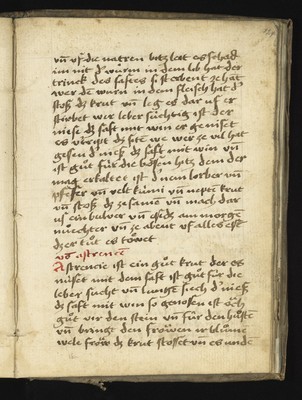 vn̄ vf die natren bitz leit es schad
im nit d' würm in dem lib hat der
trinck des saftes si sterbent ze hāt
wer den wurm in dem fleisch hat d'
stosß dz krut vn̄ leg es dar vf er
stirbet wer leber süchtig ist der
niese dz saft mit win er geniset
es vertript dz wer ze vil hat
gesen d' niesß dz saft mit win vn̄
ist gůt für die bösen hitz dem der
mag erkaltet ist d' nem lorber vn̄
pfeffer vn̄ velt kümi vn̄ nepten krut
vn̄ stosß dz ze samen vn̄ mach dar
us ein bulver vn̄ dz am morgen
nüechter vn̄ ze abent vf alles
dz er
võ astrenen
Astrencie ist ein gůt krut der es
nüset mit dem saft ist gůt für die
leber sucht vn̄ lungen siech d' niesß
dz saft mit win so genosen ist och
gůt vir den stein vn̄ für den hůsten
vn̄ bringt den fröwen ir blůmen
wele fröw dz krut stosset vn̄ es